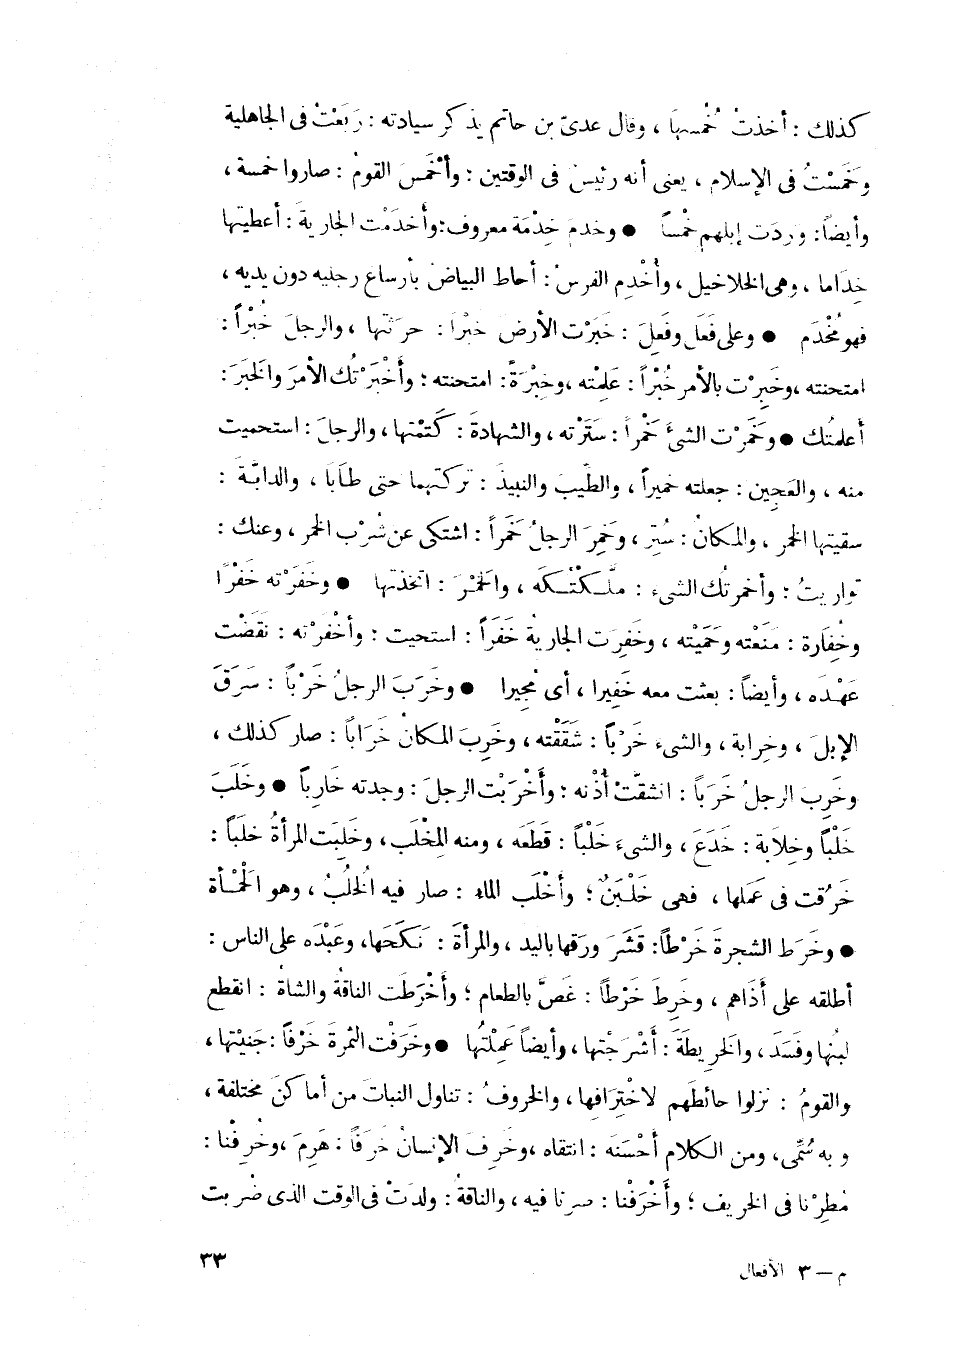 كذلك : أخذتْ خُمْسها ، وقال عدىّ بن حاتم يذكر سيادته : رَبَعْتْ فى الجاهلية
وخَمَسْتُ فى الإسلام ، يعنى أنه رئيسٌ فى الوقتين ؛ وأخْمَسَ القومُ : صاروا خمسة ،
وأيضاً : وردَت إبلهم خِمْساً ● وخدمَ خِدْمَة معروف ؛ وأخدَمْت الجاريةَ : أعطيتها
خِدَاما ، وهى الخلاخيل ، وأُخْدِم الفرسُ : أحاط البياضُ بأرساع رجليه دون يديه ،
فهو مُخْدَم ● وعلى فَعَلَ وفَعِلَ : خَبَرْت الأرضَ خبْرَا : حرَثتها ، والرجلَ خُبْراً :
امتحنته ، وخَبِرْت بالأمر خُبْراً : عَلِمْته ، وخِبْرَةً : امتحنته ؛ وأخْبَرْتُك الأمرَ والخبَرَ :
أعلمتُك ● وخَمَرْت الشىَّ خَمْراً : سَتَرْته ، والشهادةَ : كَتَمْتها ، والرجلَ : استحميت
منه ، والعَجِين : جعلته خميراً ، والطِّيبَ والنبيذَ : تركتهما حتى طابَا ، والدابَّةَ :
سقيتها الخمر ، والمكانُ : سُتِر ، وخَمِرَ الرجلُ خَمَراً : اشتكى عن شُرْب الخمر ، وعنك :
تواريتُ ؛ وأخمرتُك الشىء : ملَّكْتُكه ، والخَمْرَ : اتخذتها ● وخَفَرْته خَفْرًا
وخُفَارة : مَنَعْته وحَمَيْته ، وخَفِرَت الجاريةُ خَفَراً : استحيت ؛ وأخْفَرْته : نقَضْت
عَهْدَه ، وأيضاً : بعثت معه خَفِيرا ، أى مُجِيرا ● وخَرَبَ الرجلُ خَرْباً : سَرَقَ
الإبلَ ، وخِرابة ، والشىء خَرْباً : شَقَقْته ، وخَرِبَ المكانُ خَرَاباً : صار كذلك ،
وخَرِبَ الرجلُ خَرَباً : انشقَّتْ أذْنه ؛ وأخْرَبْت الرجلَ : وجدته خَارِباً ● وخَلَبَ
خَلْباً وخِلابَة : خَدَعَ ، والشىءَ خَلْباً : قَطَعَه ، ومنه المِخْلَب ، وخَلِبَت المرأةُ خلَباً :
خَرُقت فى عَمَلها ، فهى خَلْبَنٌ ؛ وأخْلَب الماء : صار فيه الخُلُبُ ، وهو الحَمْأة
● وخَرَط الشجرةَ خَرْطاً : قشَرَ ورَقها باليد ، والمرأةَ : نَكَحَها ، وعَبْدَه على الناس :
أطلقه على أذَاهم ، وخَرِطَ خَرْطاً : غَصَّ بالطعام ؛ وأخْرَطَت الناقةُ والشاةُ : انقطع
لبنُها وفَسَدَ ، والخريطَةَ : أشْرَجْتها ، وأيضاً عَمِلْتُها ● وخَرَفْت الثمرةَ خَرْفاً : جَنيْتها ،
والقومُ : نزلوا حائطَهم لاخْتِرَافِها ، والخروفُ : تناول النباتَ من أماكنَ مختلفة ،
وبه سُمِّى ، ومن الكلام أحْسَنَه : انتقاه ، وخَرِفَ الإنسانُ خَرفَاً : هَرِمَ ، وخُرِفْنا :
مُطِرْنا فى الخريف ؛ وأخْرَفْنا : صرنا فيه ، والناقةُ : ولدَتْ فى الوقت الذى ضُربت
م — ٣ الأفعال
٣٣